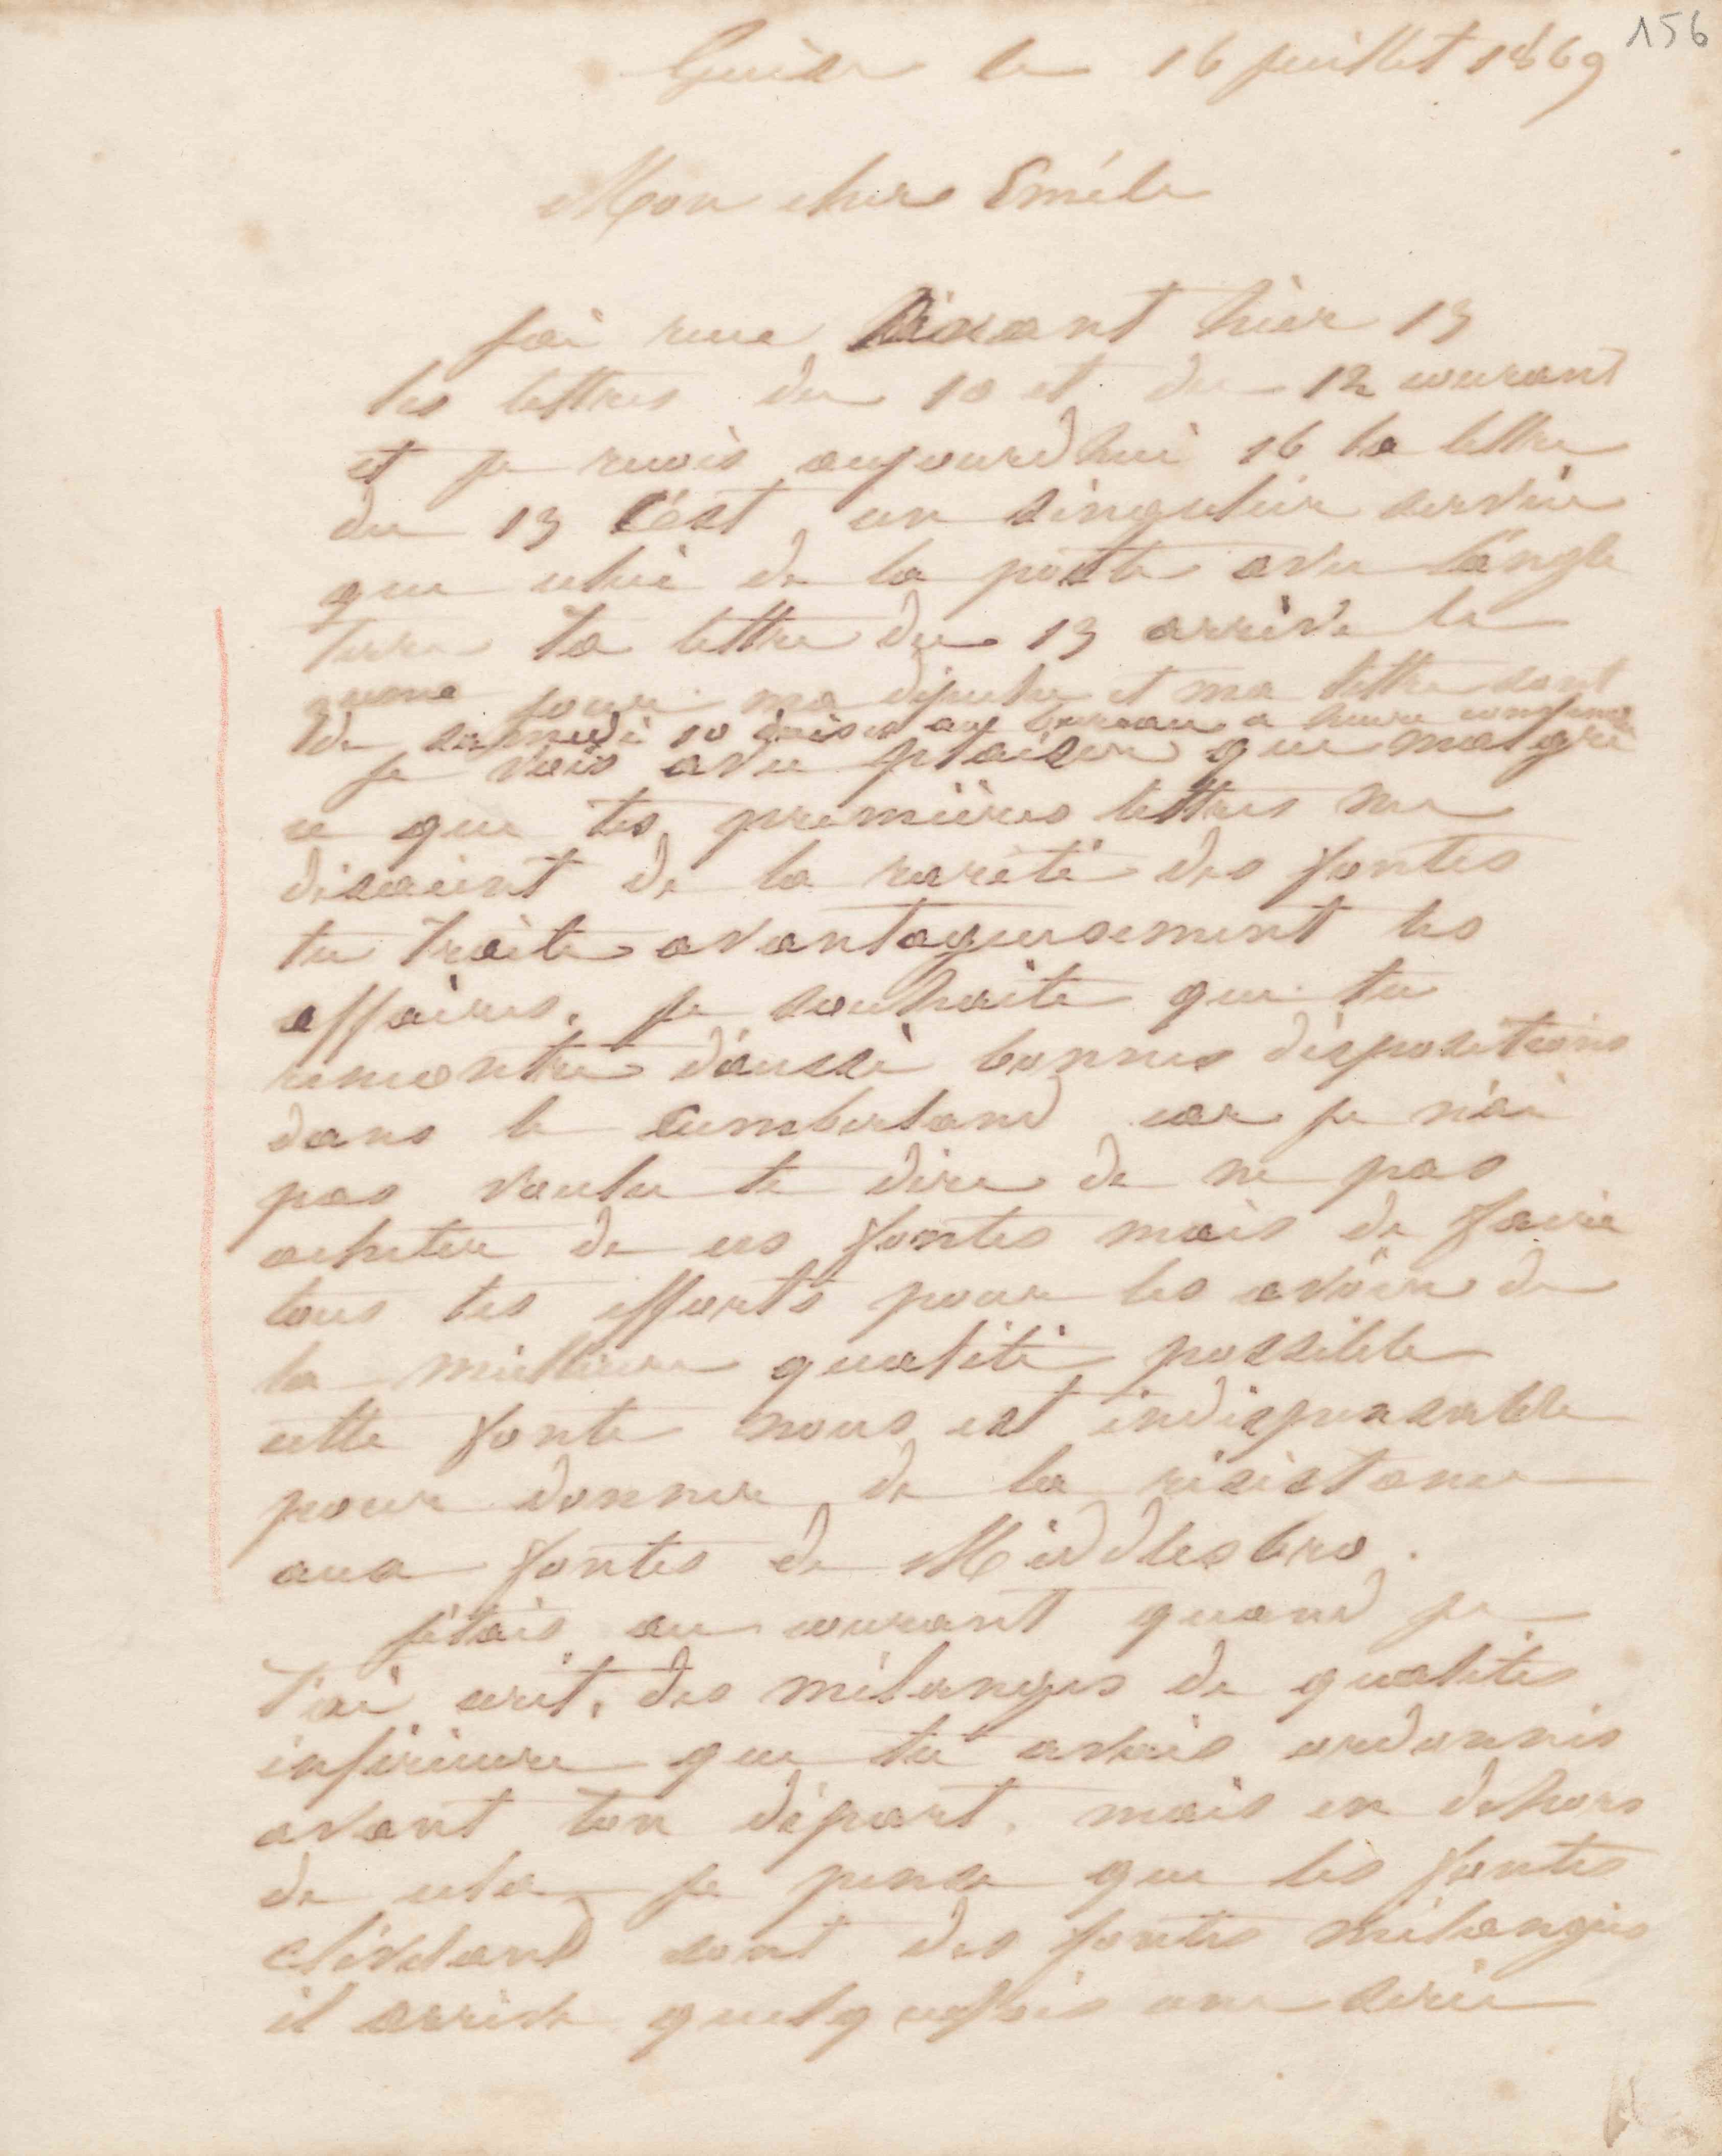 156
Guise le 16 juillet 1869
Mon cher Emile
J'ai reçu avant hier 13
tes lettres du 10 et du 12 courant
et je reçois aujourd'hui 16 ta lettre
du 13 C'est un singulier service
que celui de la poste avec l'Angle
terre Ta lettre du 13 arrive le
jour ma dépêche et ma lettre sont
de samedi 10 mises au bureau a heure
je vois avec plaisir que malgré
ce que tes premières lettres me
disaient de la rareté des fontes
tu traite avantageusement les
affaires. je souhaite que tu
rencontre d'aussi bonnes dispositions
dans le Cumberland car je n'ai
pas voulu te dire de ne pas
acheter de ces fontes mais de faire
tous tes efforts pour les avoir de
la meilleure qualité possible
cette fonte nous est indispensable
pour donner de la résistance
aux fontes de Middlesbro.
j'étais au courant quand je
t'ai écrit, des mélanges de qualités
inférieure que tu avais ordonnés
avant ton départ. mais en dehors
de cela je pense que les fontes
cléveland sont des fontes mélangées
il arrive quelquefois une série